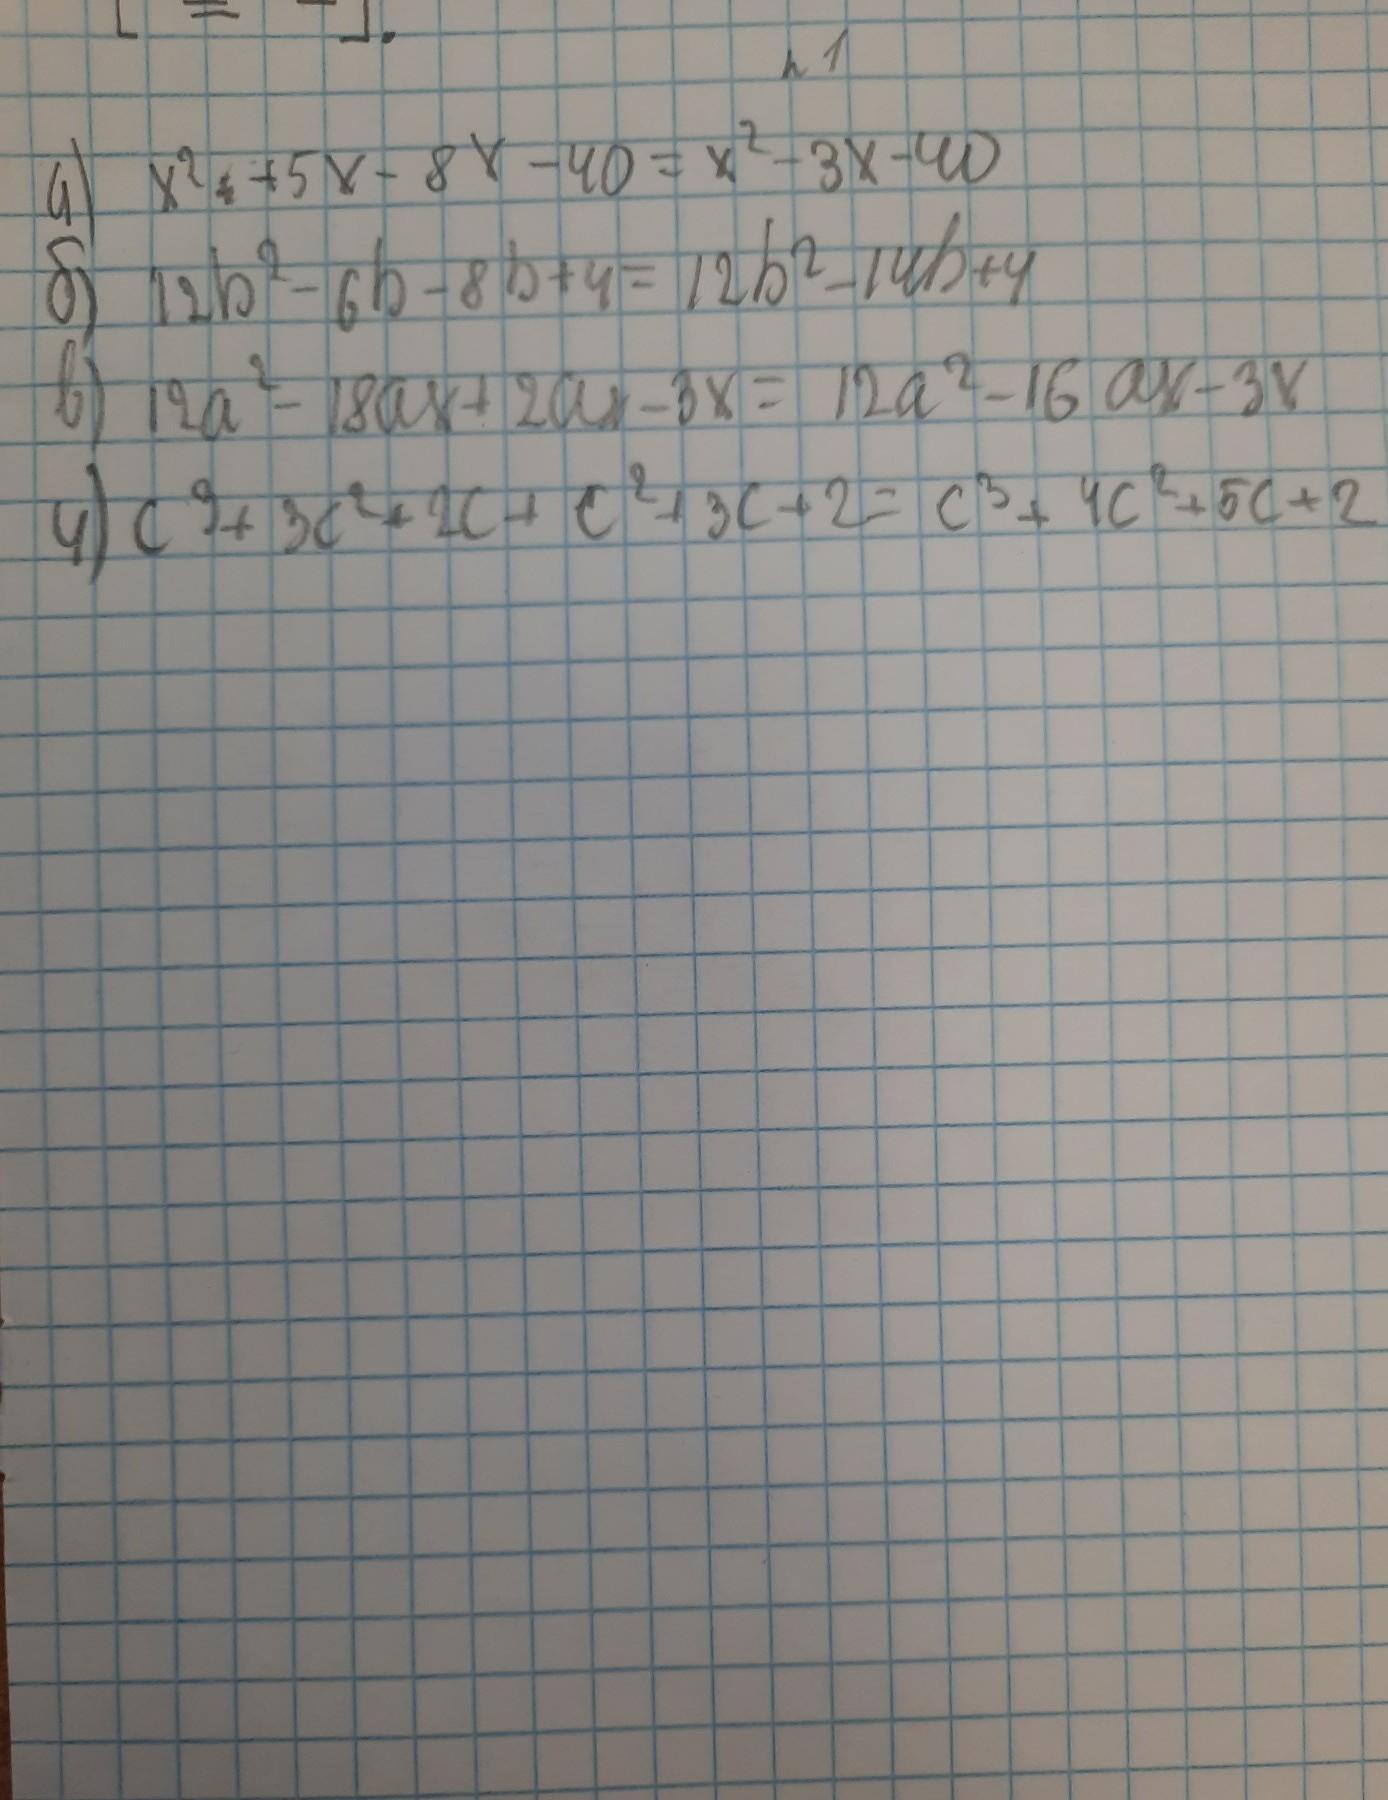 [ = - ].
n 1
а) x² + 5x - 8x - 40 = x² - 3x - 40
б) 12b² - 6b - 8b + 4 = 12b² - 14b + 4
в) 12a² - 18ax + 2ax - 3x = 12a² - 16ax - 3x
г) c³ + 3c² + 2c + c² + 3c + 2 = c³ + 4c² + 5c + 2